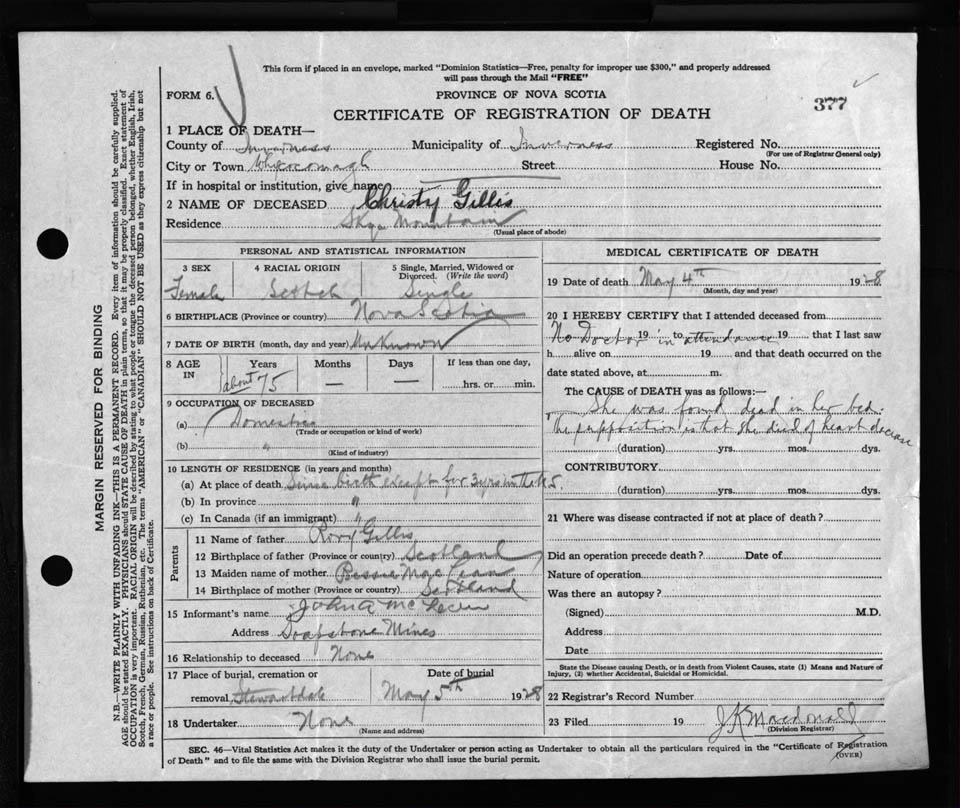 This form if placed in an envelope, marked "Dominion Statistics—Free, penalty for improper use $300," and properly addressed
will pass through the Mail "FREE"
FORM 6.
PROVINCE OF NOVA SCOTIA
377
CERTIFICATE OF REGISTRATION OF DEATH
1 PLACE OF DEATH—
County of Inverness Municipality of Inverness Registered No.
(For use of Registrar General only)
City or Town Whycocomagh Street House No.
If in hospital or institution, give name
2 NAME OF DECEASED Christy Gillis
Residence Skye Mountain
(Usual place of abode)
PERSONAL AND STATISTICAL INFORMATION
3 SEX 4 RACIAL ORIGIN 5 Single, Married, Widowed or
Divorced. (Write the word)
Female Scotch Single
6 BIRTHPLACE (Province or country) Nova Scotia
7 DATE OF BIRTH (month, day and year) Unknown
8 AGE IN Years Months Days If less than one day,
about 75 — — hrs. or min.
9 OCCUPATION OF DECEASED
(a) Domestic
(Trade or occupation or kind of work)
(b) "
(Kind of industry)
10 LENGTH OF RESIDENCE (in years and months)
(a) At place of death Since birth except for 3 yrs in the U.S.
(b) In province "
(c) In Canada (if an immigrant) "
Parents
11 Name of father Rory Gillis
12 Birthplace of father (Province or country) Scotland
13 Maiden name of mother Bessie MacLean
14 Birthplace of mother (Province or country) Scotland
15 Informant's name John A McLean
Address Soapstone Mines
16 Relationship to deceased None
17 Place of burial, cremation or Date of burial
removal Stewartdale May 5th 1928
18 Undertaker None
(Name and address)
MEDICAL CERTIFICATE OF DEATH
19 Date of death May 4th 1928
(Month, day and year)
20 I HEREBY CERTIFY that I attended deceased from
No Doctor 19 to in attendance 19 that I last saw
h alive on 19 and that death occurred on the
date stated above, at m.
The CAUSE of DEATH was as follows:—
She was found dead in her bed.
the supposition is that she died of heart disease
(duration) yrs. mos. dys.
CONTRIBUTORY
(duration) yrs. mos. dys.
21 Where was disease contracted if not at place of death?
Did an operation precede death? Date of
Nature of operation
Was there an autopsy?
(Signed) M.D.
Address
Date
State the Disease causing Death, or in death from Violent Causes, state (1) Means and Nature of
Injury, (2) whether Accidental, Suicidal or Homicidal.
22 Registrar's Record Number
23 Filed 19 J K Macdonald
(Division Registrar)
SEC. 46—Vital Statistics Act makes it the duty of the Undertaker or person acting as Undertaker to obtain all the particulars required in the "Certificate of Registration
of Death" and to file the same with the Division Registrar who shall issue the burial permit.
(OVER)
MARGIN RESERVED FOR BINDING
N.B.—WRITE PLAINLY WITH UNFADING INK—THIS IS A PERMANENT RECORD. Every item of information should be carefully supplied.
AGE should be stated EXACTLY. PHYSICIANS should STATE CAUSE OF DEATH in plain terms, so that it may be properly classified. Exact statement of
OCCUPATION is very important. RACIAL ORIGIN will be described by stating to what people or tongue the deceased person belonged, whether English, Irish,
Scotch, French, German, Russian, Ruthenian, etc. The terms "AMERICAN" or "CANADIAN" SHOULD NOT BE USED as they express citizenship but not
a race or people. See instructions on back of Certificate.